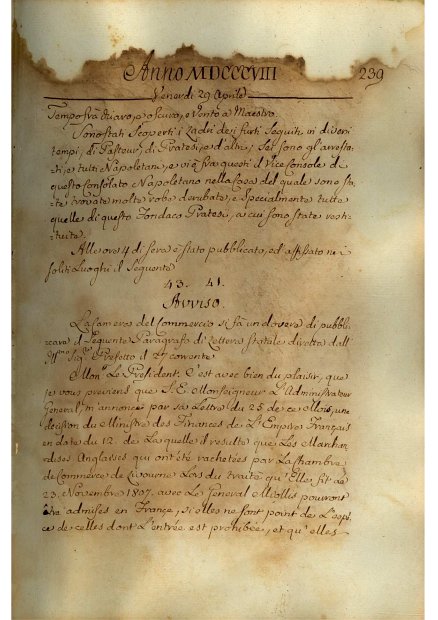 Anno MDCCCVIII 239
Venerdi 29 Aprile
Tempo frà chiaro, e oscuro, e Vento a Maestro.
Sono stati Scoperti i Ladri dei furti Seguiti in diversi
tempi, di Pasteur, di Pratesi, e d'altri; Sei sono gl'arresta-
ti, e tutti Napoletani, e vi è frà questi il Vice Console di
questo Consolato Napoletano nella Casa del quale sono sta-
te trovate molte robe derubate, e specialmente tutte
quelle di questo Fondaco Pratesi, a cui sono state resti-
tuite.
Alle ore 4 di sera è stato pubblicato, ed affisso nei
soliti Luoghi il Seguente
43. 41.
Avviso.
La Camera del Commercio si fà un dovere di pubbli-
care il Seguente Paragrafo di Lettera Statale diretta dall'
Sig.r Prefetto il 27 corrente.
Mon.r Le President. C'est avec bien du plaisir, que
je vous previens que S. E. Monseigneur L'Administrateur
General, m'annonce par sa Lettre du 25 de ce Mois, une
decision du Ministre des Finances de L'Empire Français
en date du 12. de Laquelle il resulte que Les Marchan-
dises Anglaises qui ont été rachetées par La Chambre
de Commerce de Livourne Lors du traité qu'Elle fit Le
23. Novembre 1807. avec Le General Miollis pourront
être admises en France, si elles ne font point de L'espe-
ce de celles dont L'entrée est prohibée, et qu'elles